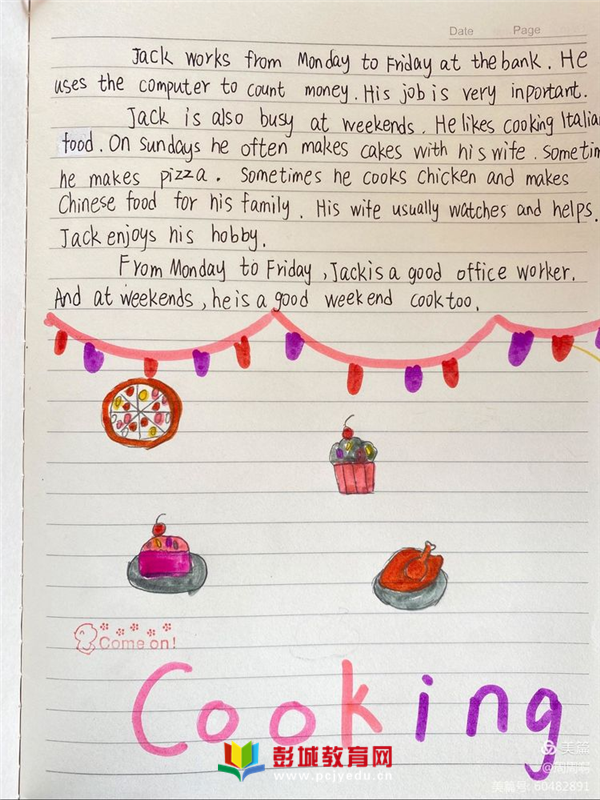 Date Page
Jack works from Monday to Friday at the bank. He
uses the computer to count money. His job is very inportant.
Jack is also busy at weekends. He likes cooking Italia
food. On sundays he often makes cakes with his wife. Sometim
he makes pizza. Sometimes he cooks chicken and makes
Chinese food for his family. His wife usually watches and helps.
Jack enjoys his hobby.
From Monday to Friday, Jack is a good office worker.
And at weekends, he is a good weekend cook too.
Come on!
Cooking
彭城教育网
www.pcjyedu.cn
美篇
美篇号: 60482891